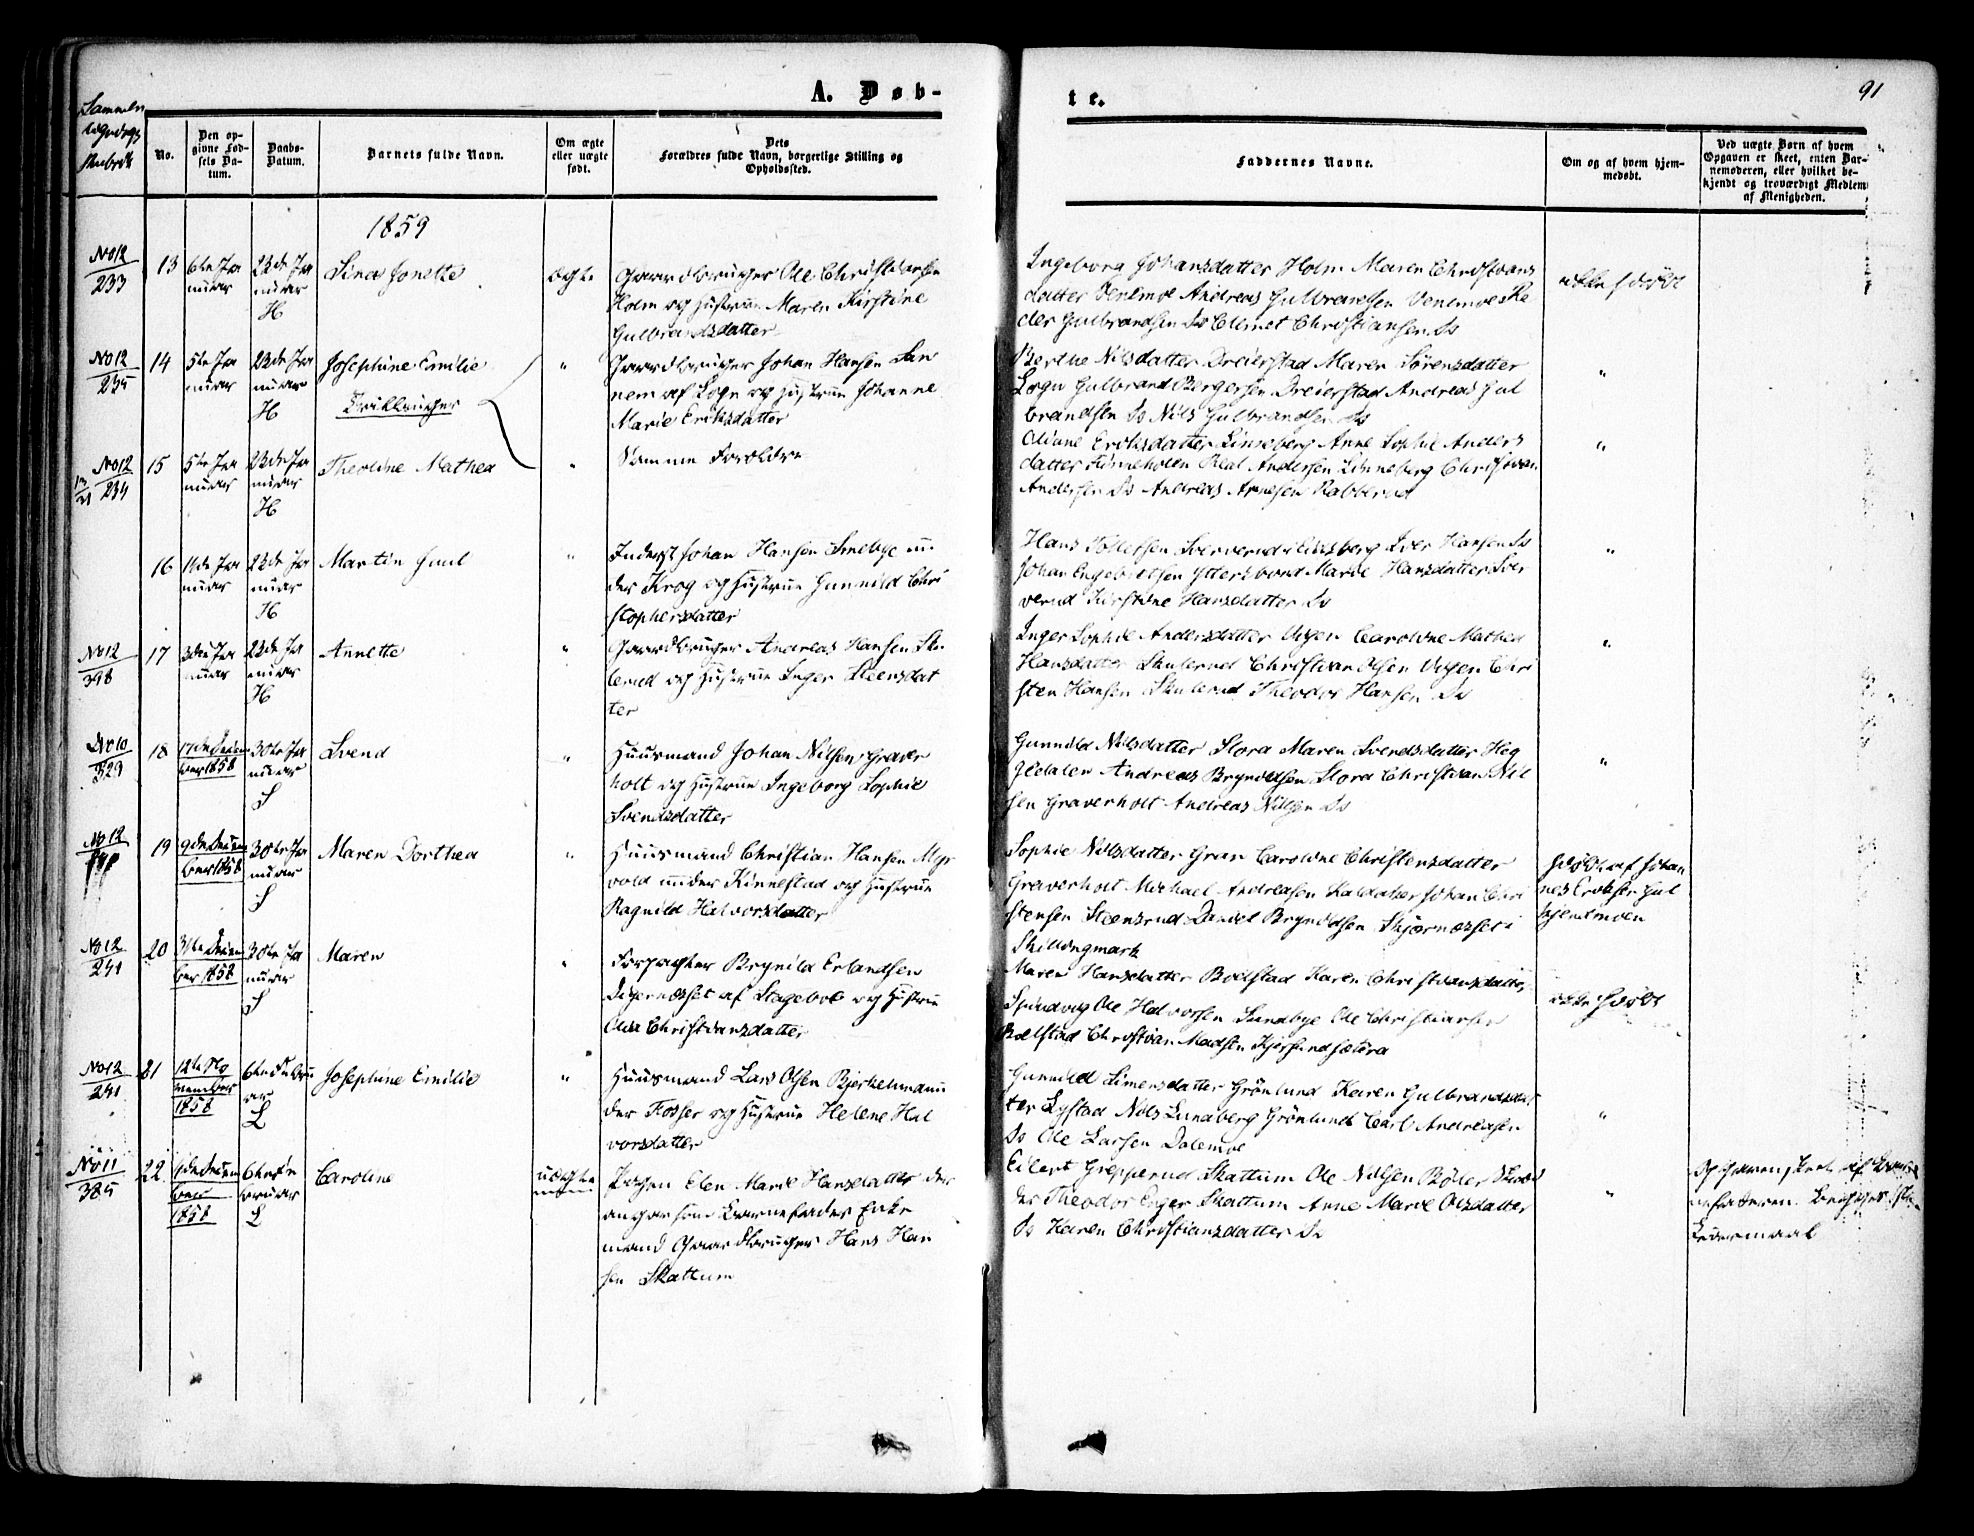 A. Døb-
te.
91
No.
Den op-
givne Fød-
sels Da-
tum.
Daabs-
Datum.
Barnets fulde Navn.
Om ægte
eller uægte
født.
Dets
Forældres fulde Navn, borgerlige Stilling og
Opholdssted.
Faddernes Navne.
Om og af hvem hjem-
medøbt.
Ved uægte Børn af hvem
Opgaven er skeet, enten Bar-
nemoderen, eller hvilket be-
kjendt og troværdigt Medlem
af Menigheden.
1859
No 12
233
13
6te Ja
nuar
23de Ja
nuar
H
Lina Jonette
ægte
Gaardbruger Ole Christiansen
Holm og Hustrue Maren Kirstine
Gulbrandsdatter
Ingeborg Johansdatter Holm Maren Christians
datter Venemoe Andreas Gulbrandsen Venemoe Pe
der Gulbrandsen Do Clemet Christiansen Do
ikke hjdøbt
No 12
235
14
5te Ja
nuar
23de Ja
nuar
H
Josephine Emilie
Tvillinger
"
Gaardbruger Johan Hansen
nem af Sogn og Hustrue Johanne
Marie Eriksdatter
Berthe Nilsdatter Dreierstad Maren Sørensdatter
Sogn Gulbrand Børgersen Dreierstad Andreas Gul
brandsen Do Nils Gulbrandsen Do
"
No 12
234
15
5te Ja
nuar
23de Ja
nuar
H
Theoline Mathea
"
Samme Forældre
Oliane Eriksdatter Linneberg Anne Sophie Anders
datter Andersen Linneberg Christian
Andersen Do Andreas Arnesen Rabberud
"
16
11te Ja
nuar
23de Ja
nuar
H
Martin Juul
"
Inderst Johan Hansen Smebye un
der Krog og Hustrue Gunnild Chri
stophersdatter
Hans Iver Hansen Do
Johan Engebretsen Ytterbond Marie Hansdatter Sver
verud Kirstine Hansdatter Do
"
No 12
398
17
3die Ja
nuar
23de Ja
nuar
H
Annette
"
Gaardbruger Andreas Hansen Sku
lerud og Hustrue Inger Steensdat
ter
Inger Sophie Andersdatter Vigen Caroline Mathea
Hansdatter Skulerud Christian Olsen Vigen Chri
sten Hansen Skulerud Theodor Hansen Do
"
No 10
329
18
17de Decem
ber 1858
30te Ja
nuar
S
Svend
"
Huusmand Johan Nilsen Graver
holt og Hustrue Ingeborg Sophie
Svendsdatter
Gunnild Nilsdatter Slora Maren Svendsdatter Heg
gedalen Andreas Brynildsen Slora Christian Nil
sen Graverholt Andreas Nilsen Do
"
No 12
19
9de Decem
ber 1858
30te Ja
nuar
S
Maren Dorthea
"
Huusmand Christian Hansen Myr
vold under Kinnestad og Hustrue
Ragnild Halvorsdatter
Sophie Nilsdatter Gran Caroline Christensdatter
Graverholt Michael Andreasen Johan Chri
stensen Steensrud Daniel Brynildsen Skjørnæset i
Skillingmark
hjdøbt af Johan
nes Eriksen Gul
tjernmoen
No 12
241
20
31te Decem
ber 1858
30te Ja
nuar
S
Maren
"
Forpagter Brynild Erlandsen
Digernæsset af Stagebøl og Hustrue
Olea Christiansdatter
Maren Hansdatter Bolstad Karen Christiansdatter
Ole Halvorsen Sundbye Ole Christiansen
Bolstad Christian Madsen
ikke hjdøbt
No 12
241
21
12te No
vember
1858
6te Febru
ar
L
Josephine Emilie
"
Huusmand Lars Olsen Bjerkelund un
der Fosser og Hustrue Helene Hal
vorsdatter
Gunnild Simensdatter Grønlund Karen Gulbrandsdat
ter Lystad Nils Lundberg Grønlund Carl Andreasen
Do Ole Larsen Dalemoe
"
No 11
385
22
1de Decem
ber
1858
6te Fe
bruar
L
Caroline
uægte
Pigen Elen Marie Hansdatter der
angav som Barnefader Enke
mand Gaardbruger Hans Han
sen Skattum
Eilert Grepperud Skattum Ole Nilsen Bøler
der Theodor Eger Skattum Anne Marie Olsdatter
Do Karen Christiansdatter Do
"
Opgaven skeet af Barne
nefaderen.
Leiermaal